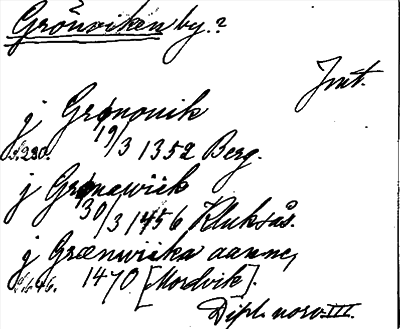 Grönviken by.?
Jmt.
j Grønouik
S. 230. 19/3 1352 Berg.
j Grønawiik
30/3 1456 Kluksås.
j Grænwiika aanne,
S. 646. 1470 [Mordvik].
Dipl. norv. III.